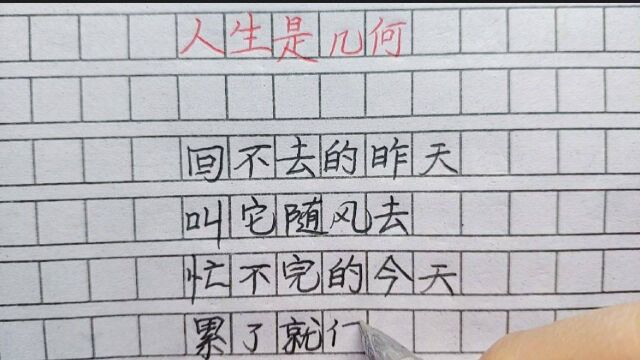 人生是几何
回不去的昨天
叫它随风去
忙不完的今天
累了就